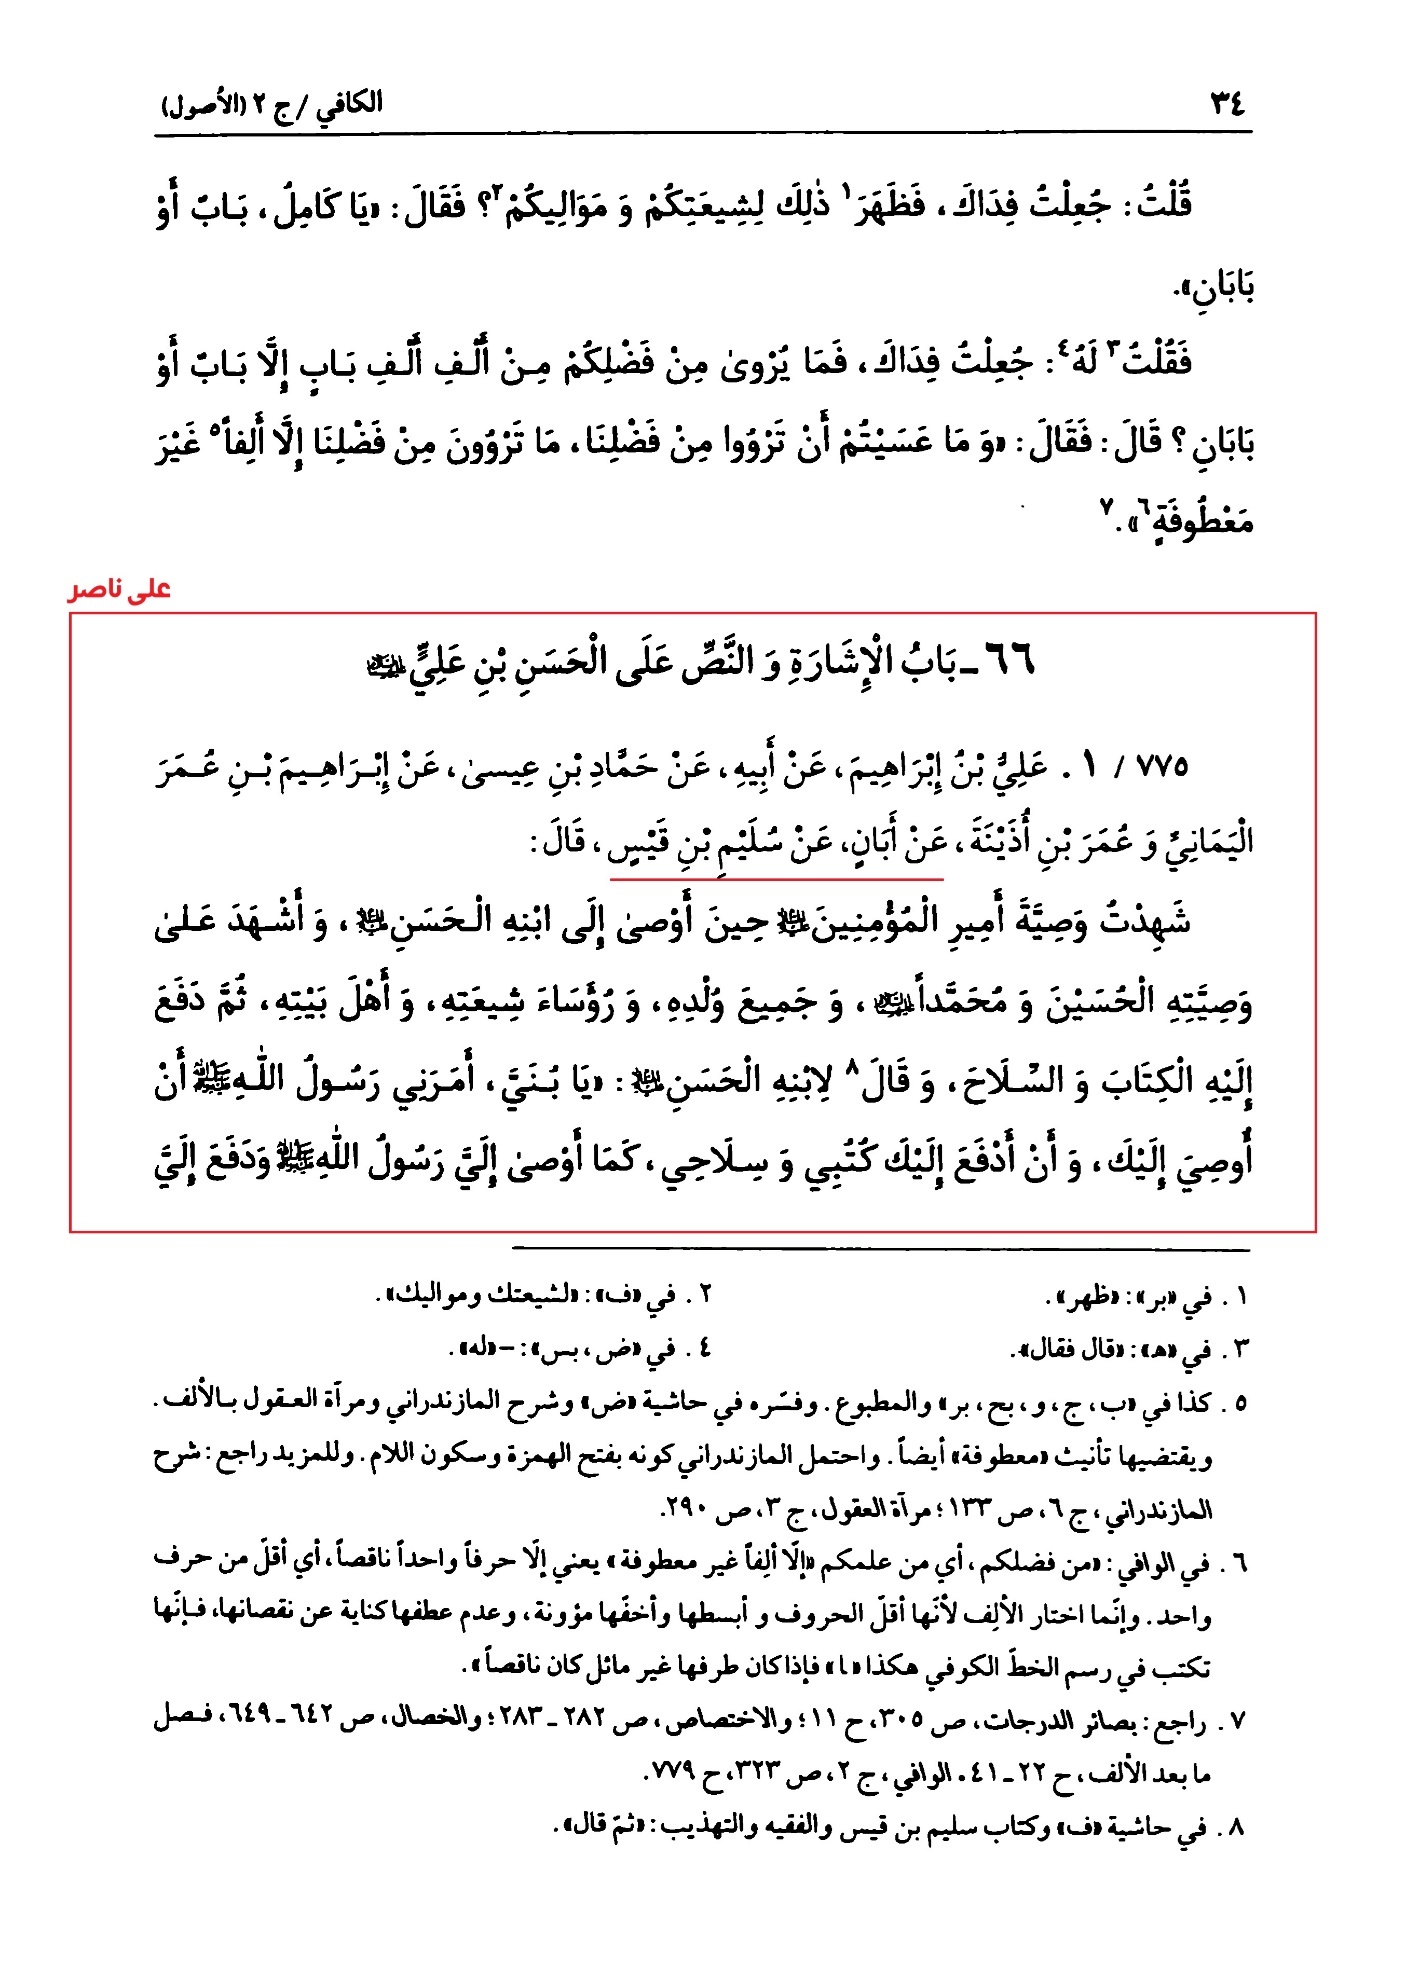 ٣٤
الكافي / ج ٢ (الأصول)
قُلْتُ: جُعِلْتُ فِدَاكَ، فَظَهَرَ١ ذٰلِكَ لِشِيعَتِكُمْ وَ مَوَالِيكُمْ٢؟ فَقَالَ: «يَا كَامِلُ، بَابٌ أَوْ
بَابَانِ».
فَقُلْتُ٣ لَهُ٤: جُعِلْتُ فِدَاكَ، فَمَا يُرْوىٰ مِنْ فَضْلِكُمْ مِنْ أَلْفِ أَلْفِ بَابٍ إِلَّا بَابٌ أَوْ
بَابَانِ؟ قَالَ: فَقَالَ: «وَ مَا عَسَيْتُمْ أَنْ تَرْوُوا مِنْ فَضْلِنَا، مَا تَرْوُونَ مِنْ فَضْلِنَا إِلَّا أَلِفاً٥ غَيْرَ
مَعْطُوفَةٍ٦».٧
علی ناصر
٦٦ ـ بَابُ الْإِشَارَةِ وَ النَّصِّ عَلَى الْحَسَنِ بْنِ عَلِيٍّ عليهما السلام
٧٧٥ / ١. عَلِيُّ بْنُ إِبْرَاهِيمَ، عَنْ أَبِيهِ، عَنْ حَمَّادِ بْنِ عِيسىٰ، عَنْ إِبْرَاهِيمَ بْنِ عُمَرَ
الْيَمَانِيِّ وَ عُمَرَ بْنِ أُذَيْنَةَ، عَنْ أَبَانٍ، عَنْ سُلَيْمِ بْنِ قَيْسٍ، قَالَ:
شَهِدْتُ وَصِيَّةَ أَمِيرِ الْمُؤْمِنِينَ عليه السلام حِينَ أَوْصىٰ إِلَى ابْنِهِ الْحَسَنِ عليه السلام، وَ أَشْهَدَ عَلىٰ
وَصِيَّتِهِ الْحُسَيْنَ وَ مُحَمَّداً عليهما السلام، وَ جَمِيعَ وُلْدِهِ، وَ رُؤَسَاءَ شِيعَتِهِ، وَ أَهْلَ بَيْتِهِ، ثُمَّ دَفَعَ
إِلَيْهِ الْكِتَابَ وَ السِّلَاحَ، وَ قَالَ٨ لِابْنِهِ الْحَسَنِ عليه السلام: «يَا بُنَيَّ، أَمَرَنِي رَسُولُ اللّٰهِ ﷺ أَنْ
أُوصِيَ إِلَيْكَ، وَ أَنْ أَدْفَعَ إِلَيْكَ كُتُبِي وَ سِلَاحِي، كَمَا أَوْصىٰ إِلَيَّ رَسُولُ اللّٰهِ ﷺ وَدَفَعَ إِلَيَّ
١. في «بر»: «ظهر». ٢. في «ف»: «لشيعتك ومواليك».
٣. في «ه»: «قال فقال». ٤. في «ض، بس»: –«له».
٥. كذا في «ب، ج، و، بح، بر» والمطبوع. وفسّره في حاشية «ض» وشرح المازندراني ومرآة العقول بالألف.
ويقتضيها تأنيث «معطوفة» أيضاً. واحتمل المازندراني كونه بفتح الهمزة وسكون اللام. وللمزيد راجع: شرح
المازندراني، ج ٦، ص ١٣٣؛ مرآة العقول، ج ٣، ص ٢٩٠.
٦. في الوافي: «من فضلكم، أي من علمكم «إلّا ألِفاً غير معطوفة» يعني إلّا حرفاً واحداً ناقصاً، أي أقلّ من حرف
واحد. وإنّما اختار الألِف لأنّها أقلّ الحروف و أبسطها وأخفّها مؤونة، وعدم عطفها كناية عن نقصانها، فإنّها
تكتب في رسم الخطّ الكوفي هكذا «ا» فإذا كان طرفها غير مائل كان ناقصاً».
٧. راجع: بصائر الدرجات، ص ٣٠٥، ح ١١؛ والاختصاص، ص ٢٨٢ ـ ٢٨٣؛ والخصال، ص ٦٤٢ ـ ٦٤٩، فصل
ما بعد الألف، ح ٢٢ ـ ٤١. الوافي، ج ٢، ص ٣٢٣، ح ٧٧٩.
٨. في حاشية «ف» وكتاب سليم بن قيس والفقيه والتهذيب: «ثمّ قال».